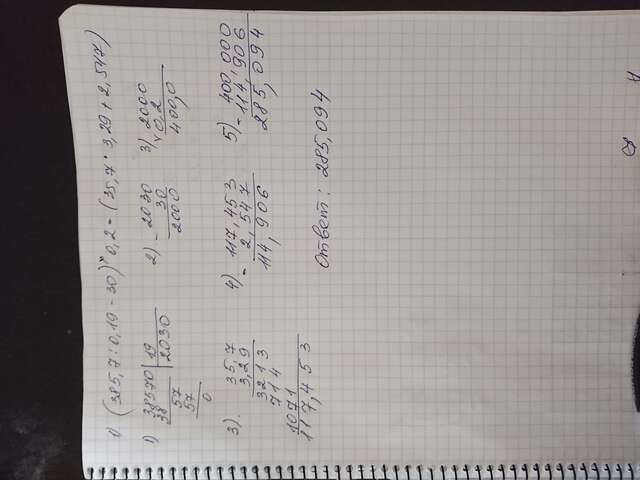 1) (385,7 : 0,19 - 30) * 0,2 - (35,7 * 3,29 + 2,547)
1) 38570 | 19
38 | 2030
57
57
0
2) - 2030
30
2000
3) 2000
× 0,2
400,0
3). 35,7
3,29
3213
714
1071
117,453
4) - 117,453
2,547
114,906
5) - 400,000
114,906
285,094
Ответ: 285,094